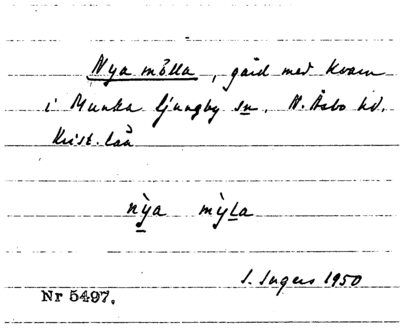 Nya mölla, gård med kvarn
i Munka ljungby sn, N. Åsbo hd.
Krist. län
nỳa mỳla
I. Ingers 1950
Nr 5497.